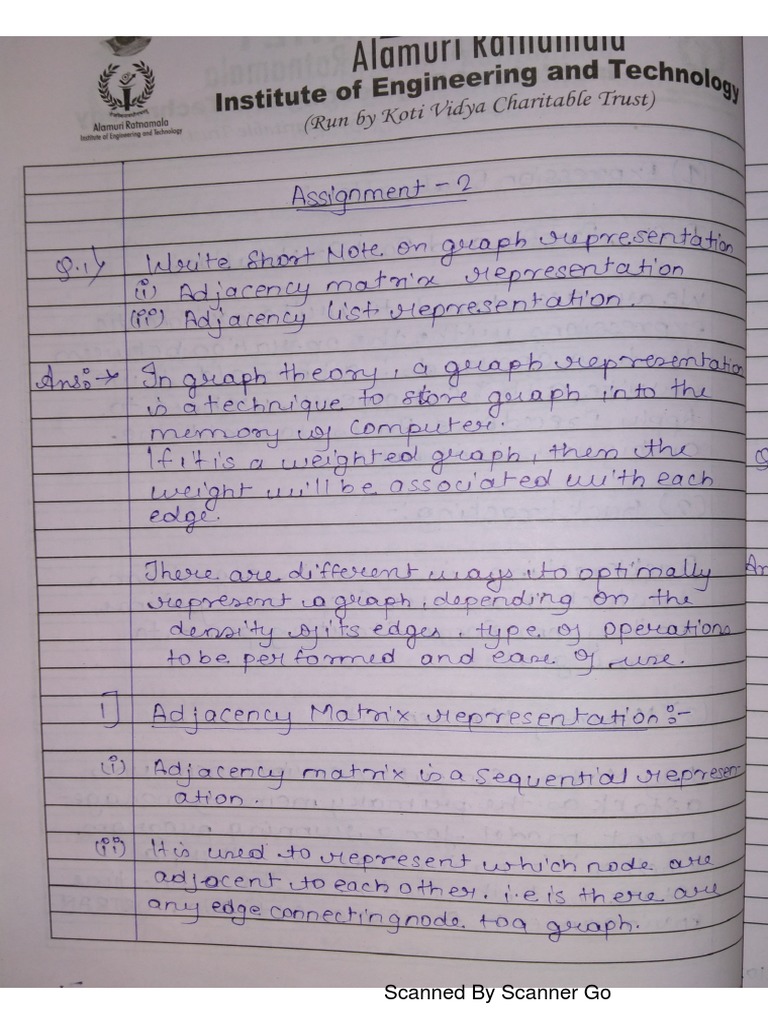 Alamuri Ratnamala
Institute of Engineering and Technology
(Run by Koti Vidya Charitable Trust)
Alamuri Ratnamala
Institute of Engineering and Technology
Assignment - 2
Q.1) Write Short Note on graph representation
(i) Adjacency matrix representation
(ii) Adjacency list representation.
Ans:→ In graph theory, a graph representation
is a technique to store graph into the
memory of computer.
If it is a weighted graph, then the
weight will be associated with each
edge.
There are different ways to optimally
represent a graph, depending on the
density of its edges, type of operations
to be performed and ease of use.
1] Adjacency Matrix representation :-
(i) Adjacency matrix is a sequential represen
ation.
(ii) It is used to represent which node are
adjacent to each other. i.e is there are
any edge connecting node to a graph.
Scanned By Scanner Go